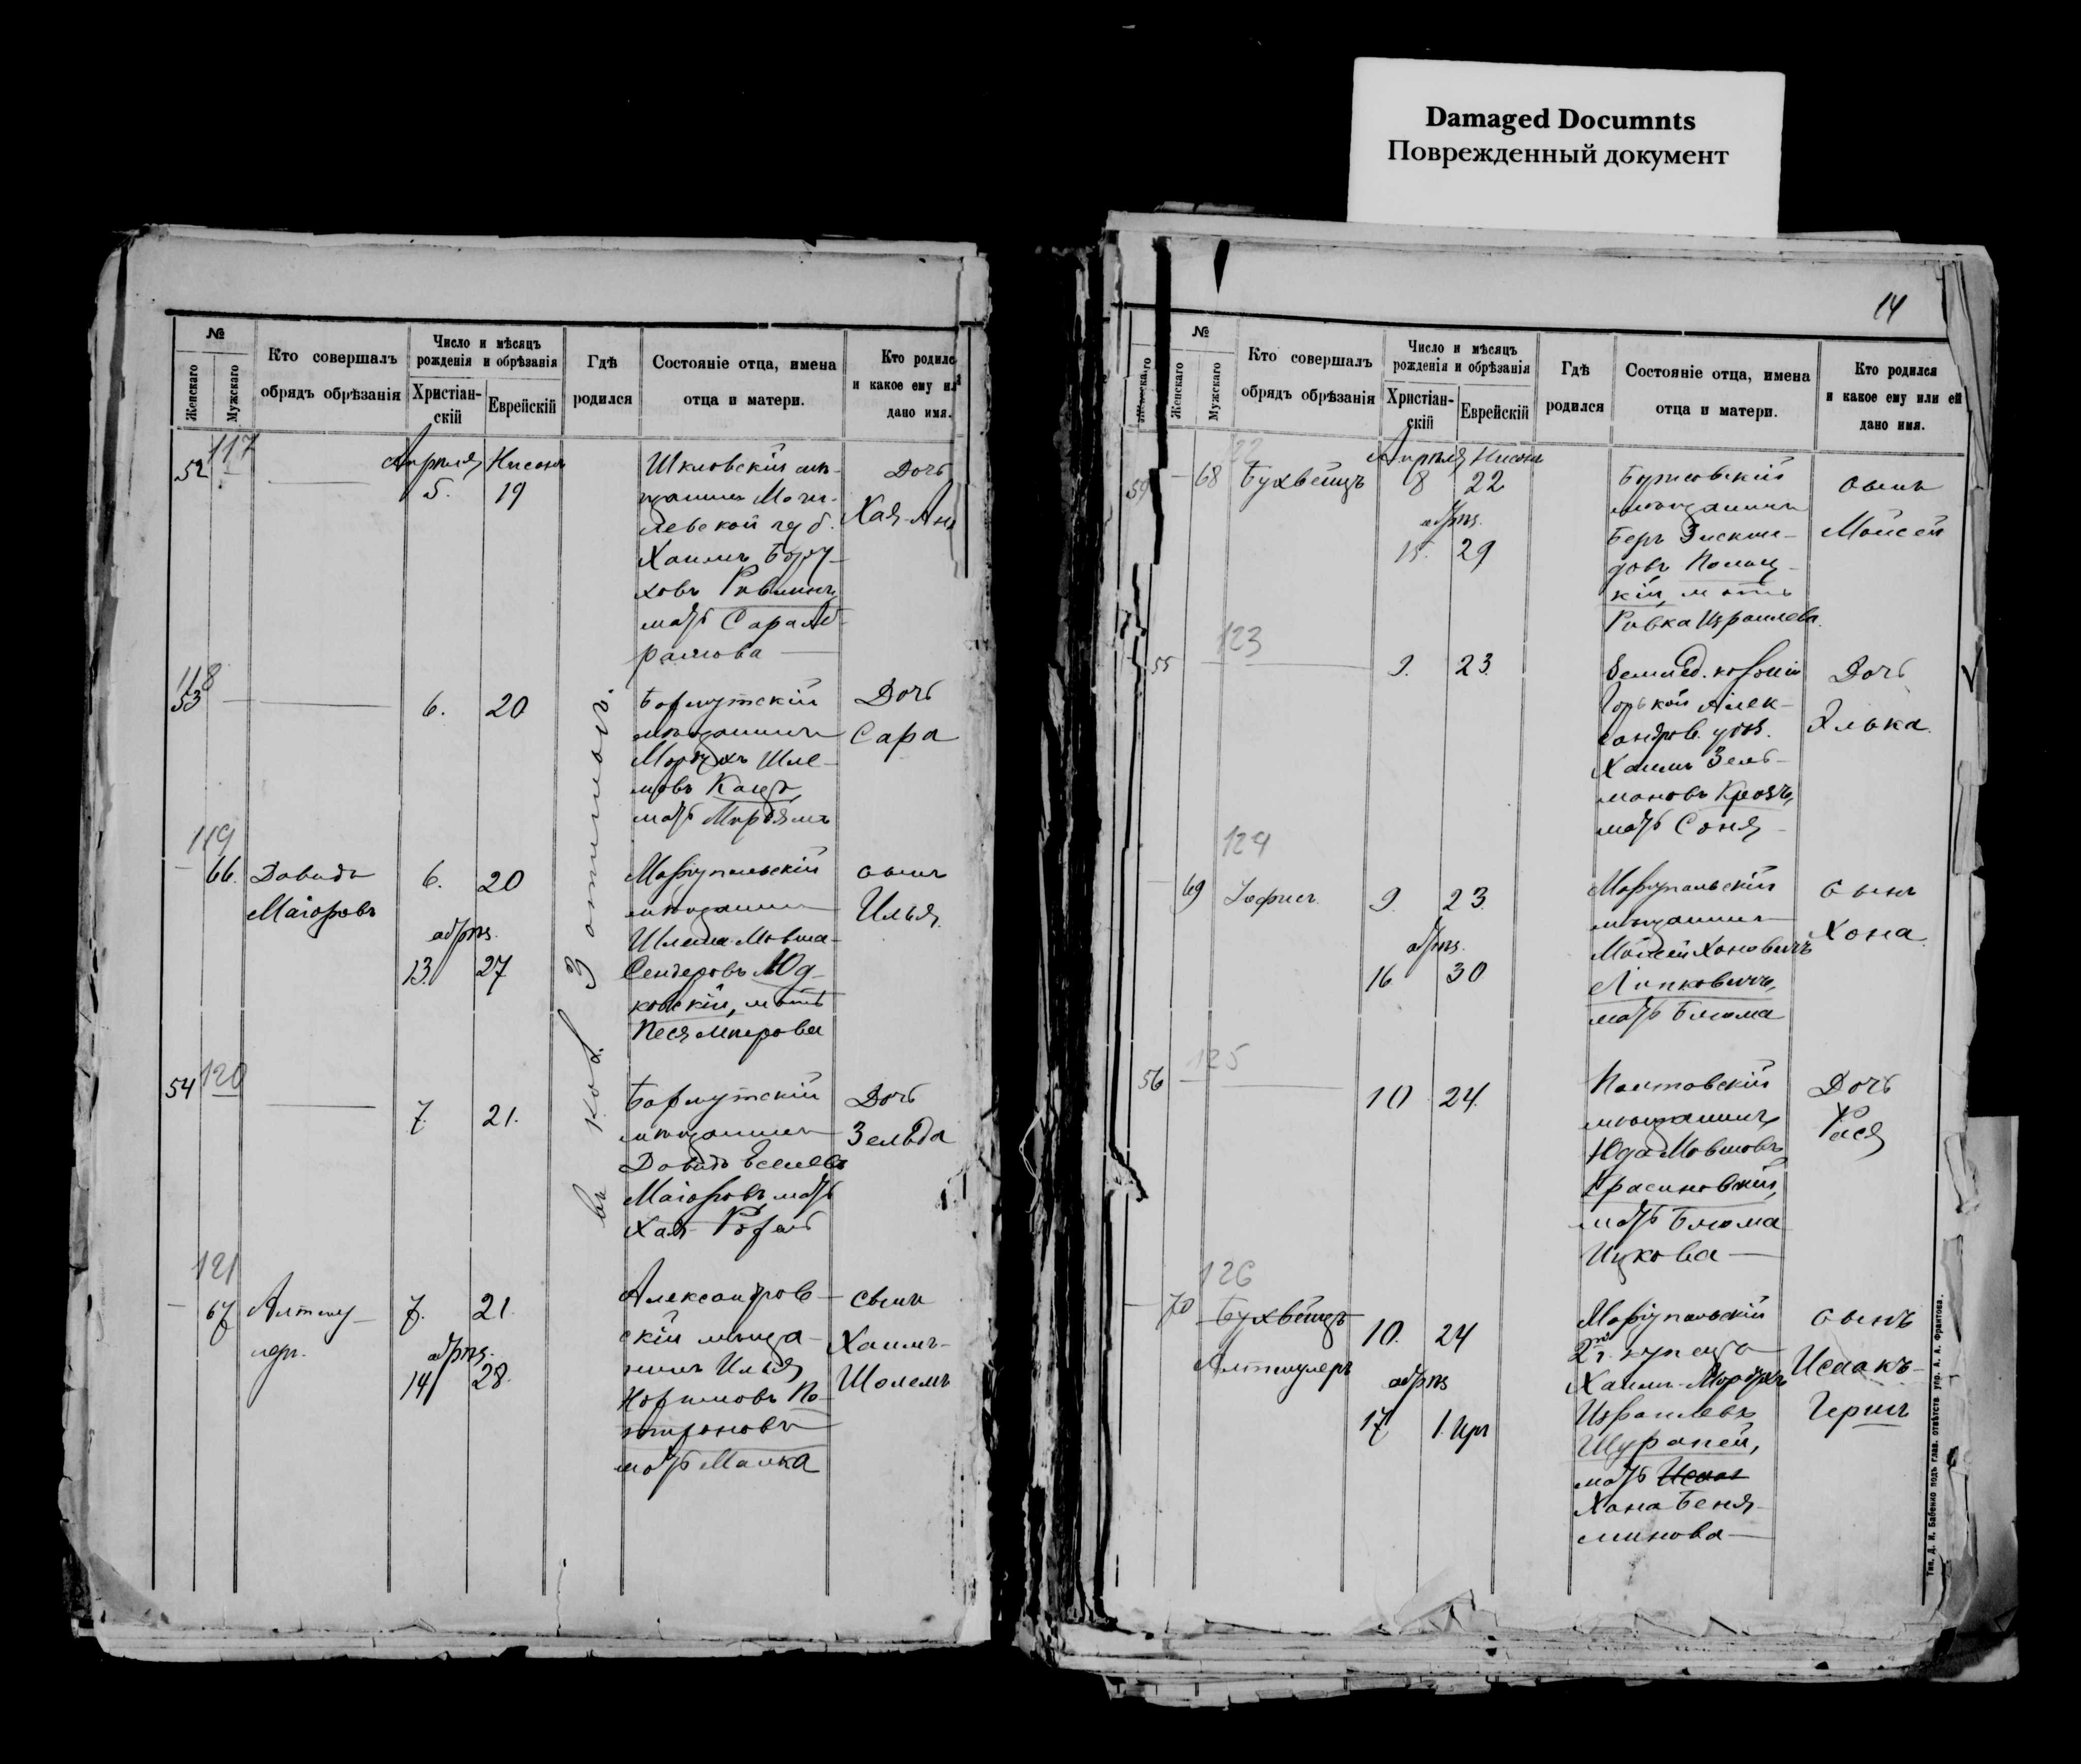 Damaged Documnts
Поврежденный документ
№
Женскаго
Мужскаго
Кто совершалъ
обрядъ обрѣзанія
Число и мѣсяцъ
рожденія и обрѣзанія
Христіан-
скій
Еврейскій
Гдѣ
родился
Состояніе отца, имена
отца и матери.
Кто родилс
и какое ему ил
дано имя.
117
52
Апрѣля Нисонъ
5. 19
Шкловскій мѣ-
щанинъ Моги-
левской губ.
Хаимъ Бору-
ховъ Ривлинъ,
мать Сара Аб-
рамова
Дочь
Хая-Ан
118
53
6. 20
мѣщанинъ
Мордухъ Шле-
мовъ Канд
мать Мирьямъ
Дочь
Сара
119
66. Давидъ
Маіоровъ
6. 20
обрѣз.
13. 27
Маріупольскій
мѣщанинъ
Шлема-Мовша-
Сендеровъ Юд-
ковскій, мать
Песя Меерова
сынъ
Илья
120
54
7. 21.
мѣщанинъ
Давидъ
Маіоровъ мать
Хая-
Дочь
Зельда
121
67 Алтшу-
леръ.
7. 21.
обрѣз.
14 28.
Александров-
скій мѣща-
нинъ Илья
мать Малка
сынъ
Хаимъ-
Шолемъ
въ кол.
14
Женскаго
№
Женскаго
Мужскаго
Кто совершалъ
обрядъ обрѣзанія
Число и мѣсяцъ
рожденія и обрѣзанія
Христіан-
скій
Еврейскій
Гдѣ
родился
Состояніе отца, имена
отца и матери.
Кто родился
и какое ему или ей
дано имя.
122
68 Бухвейцъ
Апрѣля Нисонъ
8 22
обрѣз.
15. 29
мѣщанинъ
Беръ
кій, мать
Ривка Израилева.
сынъ
Мойсей
123
55
9. 23.
колоніи
Горькой Алек-
сандров. уѣз.
Хаимъ Зель-
мановъ
мать Соня
Дочь
Элька.
124
69
9. 23.
обрѣз.
16 30
Маріупольскій
мѣщанинъ
Мойсей Хоновичъ
Липковичъ,
мать Блюма
сынъ
Хона
125
56
10 24.
Полтавскій
мѣщанинъ
Юда Мовшовъ
Красиновскій,
мать Блюма
Ицкова
Дочь
Рася
126
70 Бухвейцъ
Алтшулеръ
10. 24
обрѣз
17 1. Ияр
Маріупольскій
2й г. купецъ
Хаимъ-Мордухъ
Израилевъ
мать
Хана Беня-
минова
сынъ
Исаакъ-
Гершъ
Тип. Д. И. Бабенко подъ глав. отвѣтств. упр. А. А. Франтова.